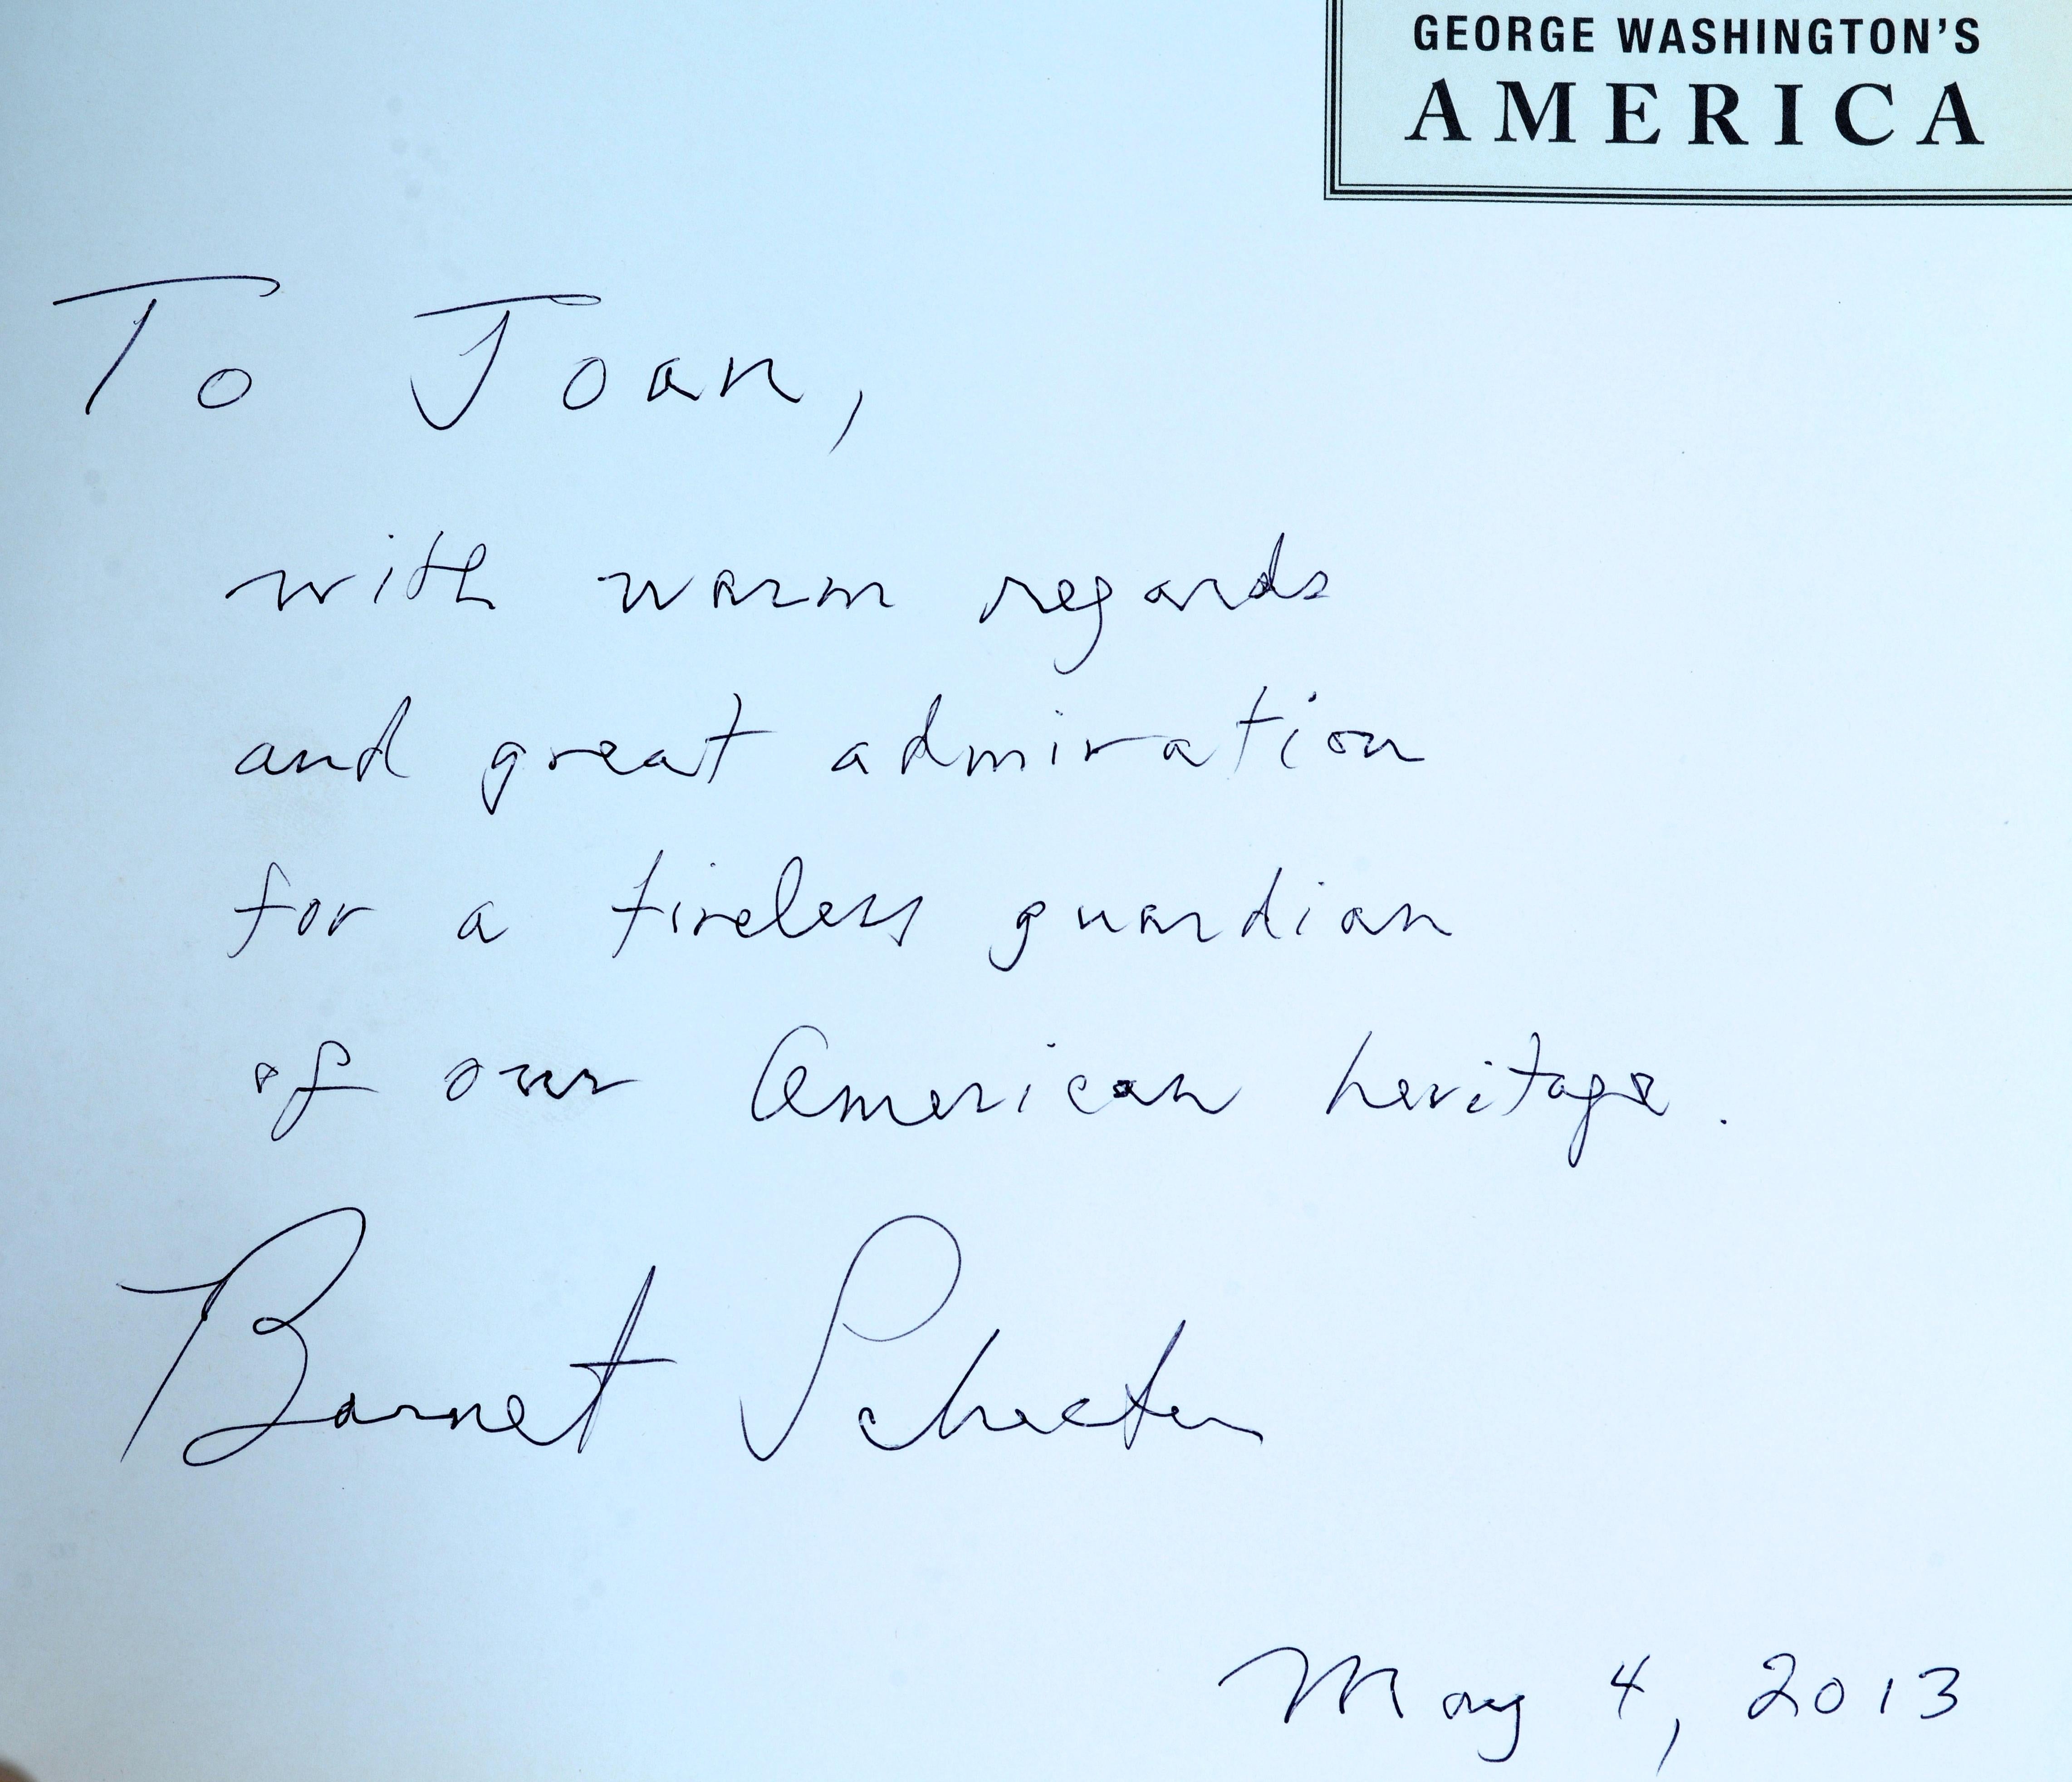 GEORGE WASHINGTON'S
AMERICA
To Joan,
with warm regards
and great admiration
for a tireless guardian
of our American heritage.
Barnet Schecter
May 4, 2013